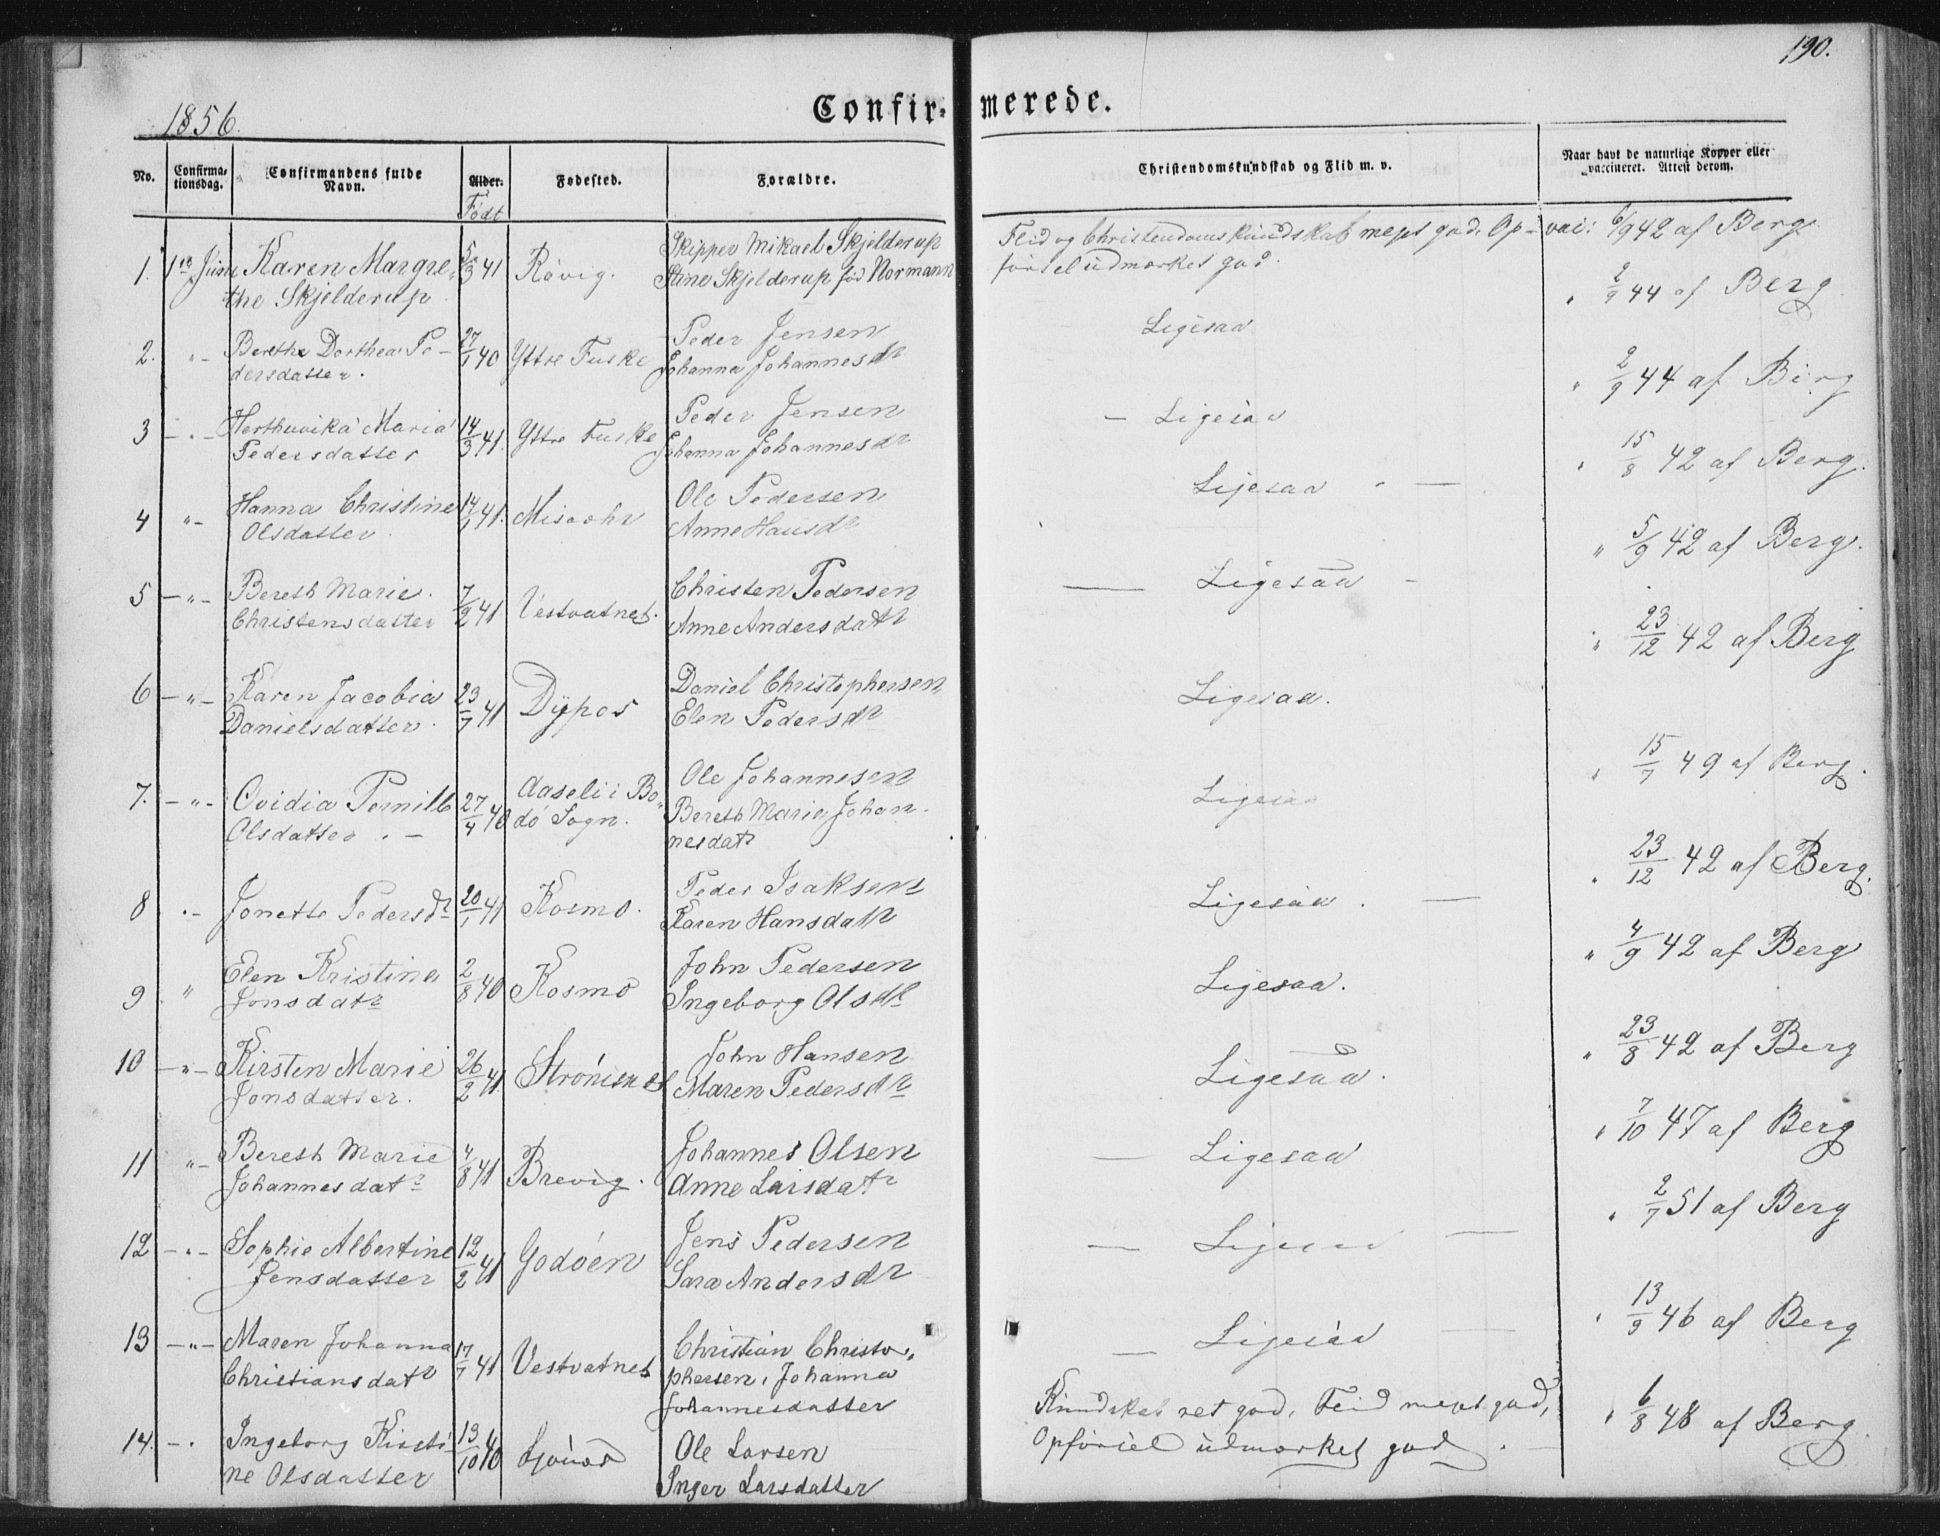 190.
1856.
Confirmerede.
No. Confirmationsdag. Confirmandens fulde Navn. Alder. Født Fødested. Forældre. Christendomskundskab og Flid m. v. Naar havt de naturlige Kopper eller vaccineret. Attest derom.
1. 1ste Juni Karen Margre- 5/3 41 Røvig. Skipper Mikael Skjelderup Flid og Christendomskundskab meget god. Op- vac: 6/9 42 af Berg
the Skjelderup Stine Skjelderup fød Normann førsel udmærket god.
2. " - Berethe Dorthea Pe- 27/1 40 Yttre Fuske Peder Jensen Ligesaa " 2/9 44 af Berg
dersdatter. Johanna Johannesdr
3 - " - Maria 14/3 41. Yttre Fuske Peder Jensen - Ligesaa " 2/9 44 af Berg
Pedersdatter Johanna Johannesdr
4 " - Hanna Christine 14/1 41. Ole Pedersen Ligesaa - " 15/8 42 af Berg.
Olsdatter Anne Hansdr
5 - " - Bereth Marie 7/2 41 Vestvatnet. Christen Pedersen - Ligesaa - " 5/9 42 af Berg.
Christensdatter Anne Andersdatr
6 - " - Karen Jacobia 23/7 41 Daniel Christophersen Ligesaa. " 23/12 42 af Berg
Danielsdatter. Elen Pedersdr
7. - " - Ovidia Pernille 27/4 40 Aaseli i Bo- Ole Johannesen Ligesaa " 15/7 49 af Berg.
Olsdatter. - dø Sogn. Bereth Maria Johan-
nesdatr
8 " - Jonette Pedersdr 20/1 41 Kosmo. Peder Isaksen Ligesaa. - " 23/12 42 af Berg.
Karen Hansdatr
9 " Elen Kristina 2/8 40 Kosmo John Pedersen Ligesaa. " 4/9 42 af Berg
Jonsdatr Ingeborg Olsdr
10 - " - Kirsten Marie 26/2 41 Strømsnes John Hansen Ligesaa. " 23/8 42 af Berg
Jonsdatter. Maren Pedersdr
11 " - Bereth Marie 4/8 41 Brevig. Johannes Olsen - Ligesaa " 7/10 47 af Berg
Johannesdatr Anne Larsdatr
12 - " - Sophie Albertine 12/2 41 Godøen Jens Pedersen - Ligesaa - " 2/7 51 af Berg
Jensdatter Sara Andersdr
13 - " - Maren Johanna 17/7 41 Vestvatnet Christian Christo- - Ligesaa - " 13/9 46 af Berg
Christiansdatr phersen, Johanna
Johannesdatter
14. - " Ingeborg Kirsti- 13/10 40 Ole Larsen Kundskab ret god, Flid meget god, " 6/8 48 af Berg
ne Olsdatter Inger Larsdatter Opførsel udmærket god.